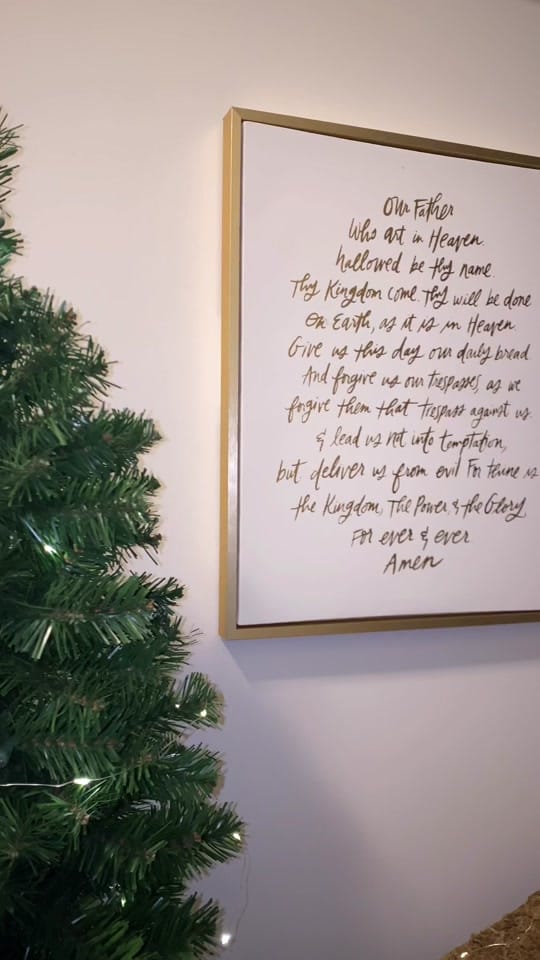 Our Father
Who art in Heaven.
hallowed be thy name.
Thy Kingdom come. Thy will be done
on Earth, as it is in Heaven.
Give us this day our daily bread
And forgive us our trespasses, as we
forgive them that trespass against us.
& lead us not into temptation,
but deliver us from evil For thine is
the Kingdom, The Power, & the Glory.
For ever & ever
Amen